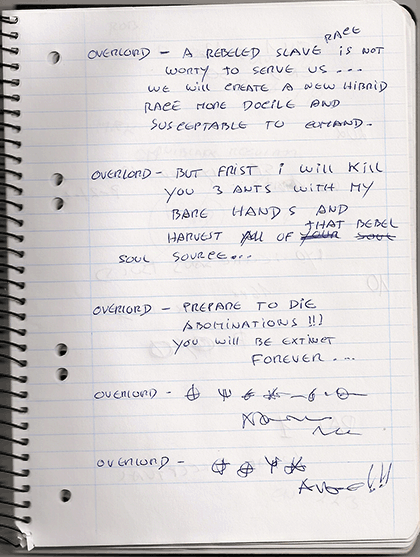 OVERLORD - A REBELED SLAVE RACE IS NOT
WORTY TO SERVE US ...
WE WILL CREATE A NEW HIBRID
RACE MORE DOCILE AND
SUSCEPTABLE TO COMAND.
OVERLORD - BUT FRIST I WILL KILL
YOU 3 ANTS WITH MY
BARE HANDS AND
HARVEST ALL OF YOUR THAT REBEL SOUL
SOUL SOURCE...
OVERLORD - PREPARE TO DIE
ABOMINATIONS !!!
YOU WILL BE EXTINCT
FOREVER ....
OVERLORD -
OVERLORD -